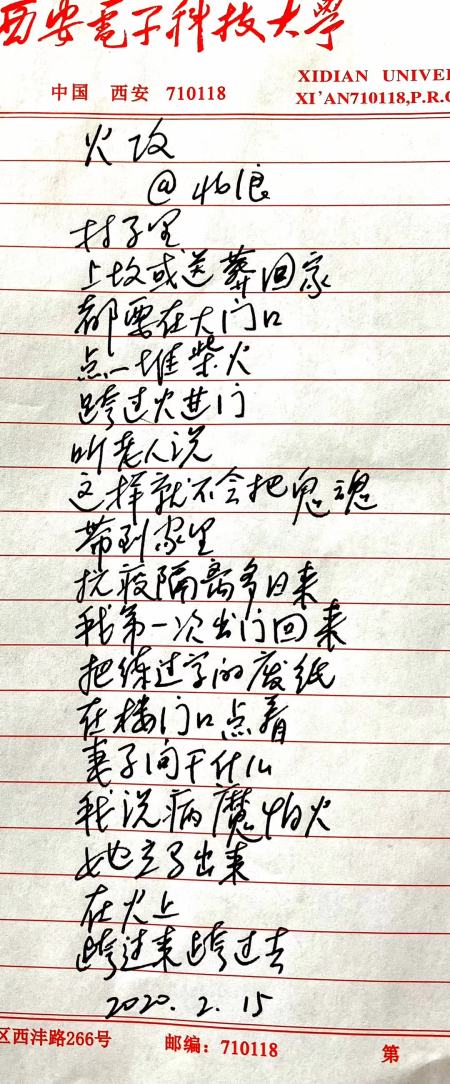 西安電子科技大學
XIDIAN UNIVE
中国 西安 710118
XI'AN710118,P.R.C
火攻
@ 伊沙浪
村子里
上坟或送葬回家
都要在大门口
点一堆柴火
跨过火进门
听老人说
这样就不会把鬼魂
带到家里
抗疫隔离多日来
我第一次出门回来
把练过字的废纸
在楼门口点着
妻子问干什么
我说病魔怕火
她立了出来
在火上
跨过来跨过去
2020.2.15
区西沣路266号 邮编：710118 第